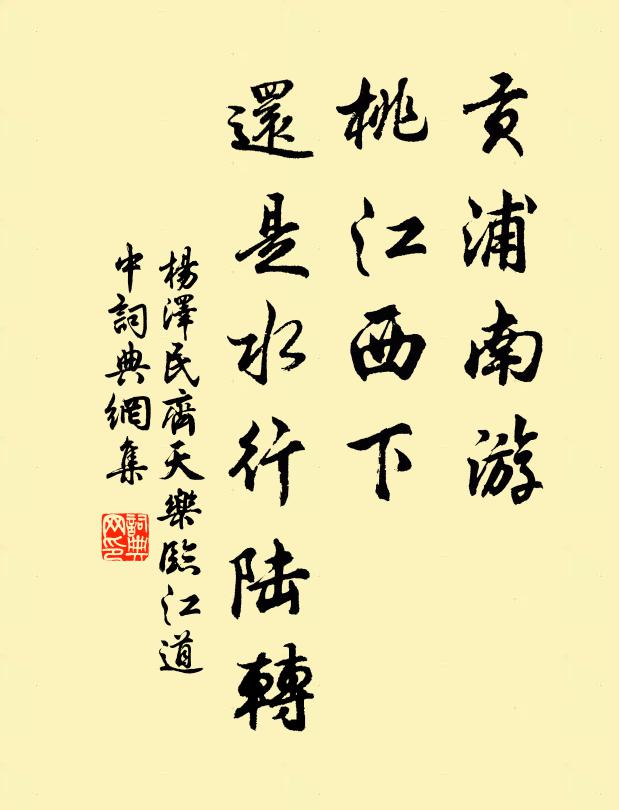 贡浦南游
桃江西下
還是水行陆轉
楊澤民齊天樂臨江道
中詞典網集
詞典
网印